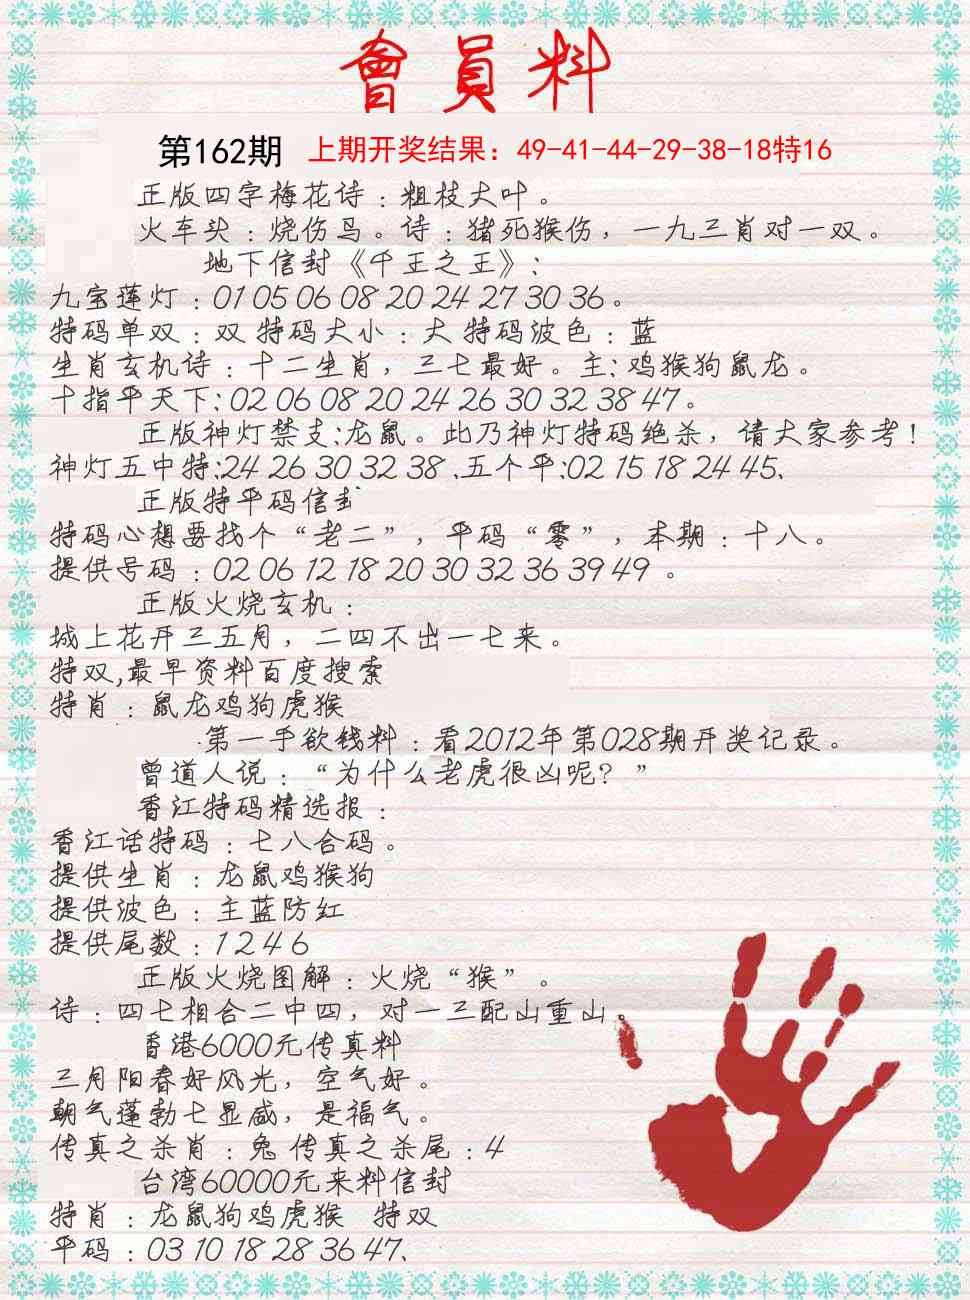 會員料
第162期 上期开奖结果：49-41-44-29-38-18特16
正版四字梅花诗：粗枝大叶。
火车头：烧伤鸟。诗：猪死猴伤，一九三肖对一双。
地下信封《千王之王》：
九宝莲灯：01 05 06 08 20 24 27 30 36。
特码单双：双 特码大小：大 特码波色：蓝
生肖玄机诗：十二生肖，三七最好。主：鸡猴狗鼠龙。
十指平天下：02 06 08 20 24 26 30 32 38 47。
正版神灯禁支：龙鼠。此乃神灯特码绝杀，请大家参考！
神灯五中特：24 26 30 32 38、五个平：02 15 18 24 45、
正版特平码信封
特码心想要找个“老二”，平码“零”，本期：十八。
提供号码：02 06 12 18 20 30 32 36 39 49 。
正版火烧玄机：
城上花开三五月，二四不出一七来。
特双,最早资料百度搜索
特肖：鼠龙鸡狗虎猴
第一手欲钱料：看2012年第028期开奖记录。
曾道人说：“为什么老虎很凶呢？”
香江特码精选报：
香江话特码：七八合码。
提供生肖：龙鼠鸡猴狗
提供波色：主蓝防红
提供尾数：1 2 4 6
正版火烧图解：火烧“猴”。
诗：四七相合二中四，对一三配山重山。
香港6000元传真料
三月阳春好风光，空气好。
朝气蓬勃七显威，是福气。
传真之杀肖：兔 传真之杀尾：4
台湾60000元来料信封
特肖：龙鼠狗鸡虎猴 特双
平码：03 10 18 28 36 47、